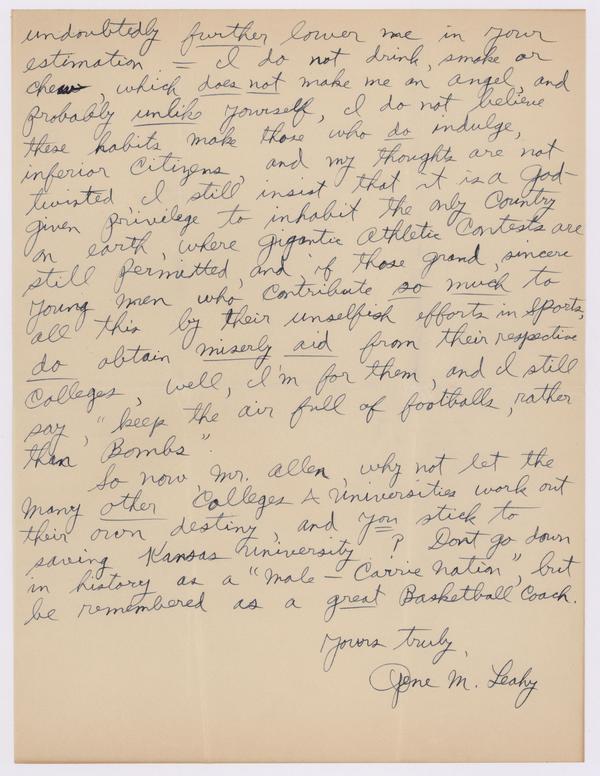 undoubtedly further lower me in your
estimation = I do not drink, smoke or
chew, which does not make me an angel, and
probably unlike yourself, I do not believe
these habits make those who do indulge,
inferior citizens, and my thoughts are not
twisted, I still insist that it is a God-
given privilege to inhabit the only Country
on earth, where gigantic Athletic Contests are
still permitted, and, if those grand, sincere
young men who contribute so much to
all this by their unselfish efforts in sports,
do obtain miserly aid from their respective
Colleges, well, I'm for them, and I still
say, "keep the air full of footballs, rather
than Bombs".
So now, Mr. Allen, why not let the
many other Colleges & Universities work out
their own destiny, and you stick to
saving Kansas University? Dont go down
in history as a "Male - Carrie Nation", but
be remembered as a great Basketball Coach.
Yours truly,
Gene M. Leahy